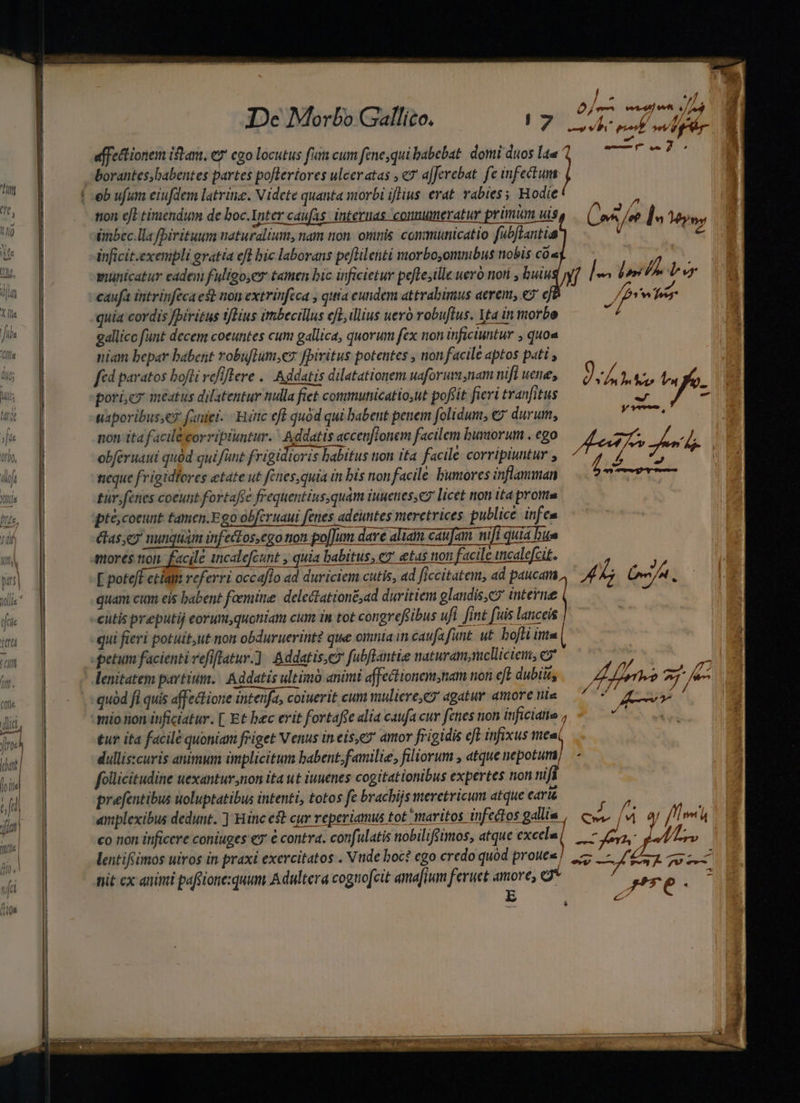 De Morbo Gallico. 17
affectionem istam, & ego locutus sum cum sene, qui habebat domi duos la=
borantes, habentes partes posteriores ulceratas, & asserebat se infectum
ob usum eiusdem latrinæ. Videte quanta morbi istius erat rabies; Hodie
non est timendum de hoc. Inter causas internas connumeratur primum uis,
imbecilla spirituum naturalium, nam non omnis communicatio substantiæ
inficit. exempli gratia est hic laborans pestilenti morbo, omnibus nobis cō=
municatur eadem fuligo, & tamen hic inficietur peste, ille uerò non, huius
causa intrinseca est non extrinseca, quia eundem attrahimus aerem, & est
quia cordis spiritus istius imbecillus est, illius uerò robustus. Ita in morbo
gallico sunt decem coeuntes cum gallica, quorum sex non inficiuntur, quo=
niam hepar habent robustum, & spiritus potentes, non facilè aptos pati,
sed paratos hosti resistere. Addatis dilatationem uasorum, nam nisi uenæ,
pori, & meatus dilatentur nulla fiet communicatio, ut possit fieri transitus
uaporibus, & saniei. Hinc est quòd qui habent penem solidum, & durum,
non ita facilè corripiuntur. Addatis accensionem facilem humorum. ego
obseruaui quòd qui sunt frigidioris habitus non ita facilè corripiuntur,
neque frigidiores ætate ut senes, quia in his non facilè humores inflamman
tur, senes coeunt fortasse frequentius, quàm iuuenes, & licet non ita prom=
ptè, coeunt tamen. Ego obseruaui senes adeuntes meretrices publicè infe=
ctas, & nunquàm infectos, ego non possum dare aliam causam nisi quia hu=
mores non facilè incalescunt, quia habitus, & ætas non facilè incalescit.
[ potest etiam referri occasio ad duriciem cutis, ad siccitatem, ad paucam,
quam cum eis habent fœminæ delectationē, ad duritiem glandis, & internæ
cutis præputij eorum, quoniam cum in tot congressibus usi sint suis lanceis
qui fieri potuit, ut non obduruerint? quæ omnia in causa sunt ut hosti im=
petum facienti resistatur.] Addatis, & substantiæ naturam, molliciem, &
lenitatem partium. Addatis ultimò animi affectionem, nam non est dubiū,
quòd si quis affectione intensa, coiuerit cum muliere, & agatur amore ni=
mio non inficiatur. [ Et hæc erit fortasse alia causa cur senes non infician=
tur ita facilè quoniam friget Venus in eis, & amor frigidis est infixus me=
dullis: curis animum implicitum habent, familiæ, filiorum, atque nepotum
sollicitudine uexantur, non ita ut iuuenes cogitationibus expertes non nisi
præsentibus uoluptatibus intenti, totos se brachijs meretricum atque earū
amplexibus dedunt. ] Hinc est cur reperiamus tot maritos infectos galli=
co non inficere coniuges & è contra. consulatis nobilissimos, atque excel=
lentissimos uiros in praxi exercitatos. Vnde hoc? ego credo quòd proue=
nit ex animi passione: quum Adultera cognoscit amasium feruet amore, &
E